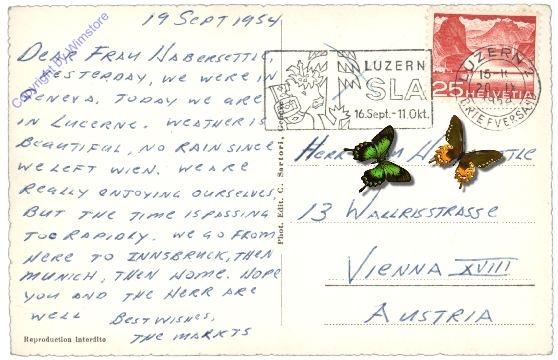 19 SEPT 1954
DEAR FRAU HABERSETTLE,
YESTERDAY, WE WERE IN
GENEVA, TODAY WE ARE
IN LUCERNE. WEATHER IS
BEAUTIFUL, NO RAIN SINCE
WE LEFT WIEN. WE ARE
REALLY ENJOYING OURSELVES
BUT THE TIME IS PASSING
TOO RAPIDLY. WE GO FROM
HERE TO INNSBRUCK, THEN
MUNICH, THEN HOME. HOPE
YOU AND THE HERR ARE
WELL BEST WISHES,
THE MARKTS
Reproduction interdite
Copyright by Wimstore
Phot. Edit. C. Sartori, Genève
LUZERN
SLA
16.Sept.-11.Okt.
25 HELVETIA
LUZERN 2
BRIEFVERSAND
HERR
13
VIENNA XVIII
AUSTRIA